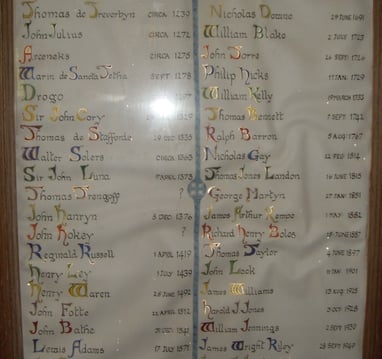 Thomas de Treverbyn CIRCA 1239
John Julius CIRCA 1272
Arceneks CIRCA 1275
Warin de Sancta Tetha SEPT. 1278
Drogo
Sir John Cory 1329
Thomas de Stafforde 1335
Walter Solers CIRCA 1363
Sir John Luna 7 APRIL 1373
Thomas Trengoff ?
John Hanryn 8 DEC 1376
John Kokey ?
Reginald Russell 1 APRIL 1419
Henry Ley 1 JULY 1439
Henry Waren JUNE 1492
John Fotte 22 APRIL 1512
John Bathe DEC 1541
Lewis Adams 17 JULY 1571
Nicholas Downe 29 JUNE 1691
William Blake 2 JULY 1723
John Torre 26 SEPT 1726
Philip Hicks 17 JAN. 1729
William Kelly 19 MARCH 1733
Thomas Bennett 7 SEPT. 1742
Ralph Barron 5 AUG 1767
Nicholas Gay 22 FEB 1814
Thomas Jones Landon 16 JUNE 1815
George Martyn 27 JAN. 1851
James Arthur Kempe 1882
Richard Henry Boles JUNE 1887
Thomas Taylor 4 JUNE 1897
John Lock JAN 1901
James Williams AUG. 1925
Harold J. Jones 2 OCT 1928
William Jennings 2 SEPT 1939
James Wright Riley 23 SEPT 1949